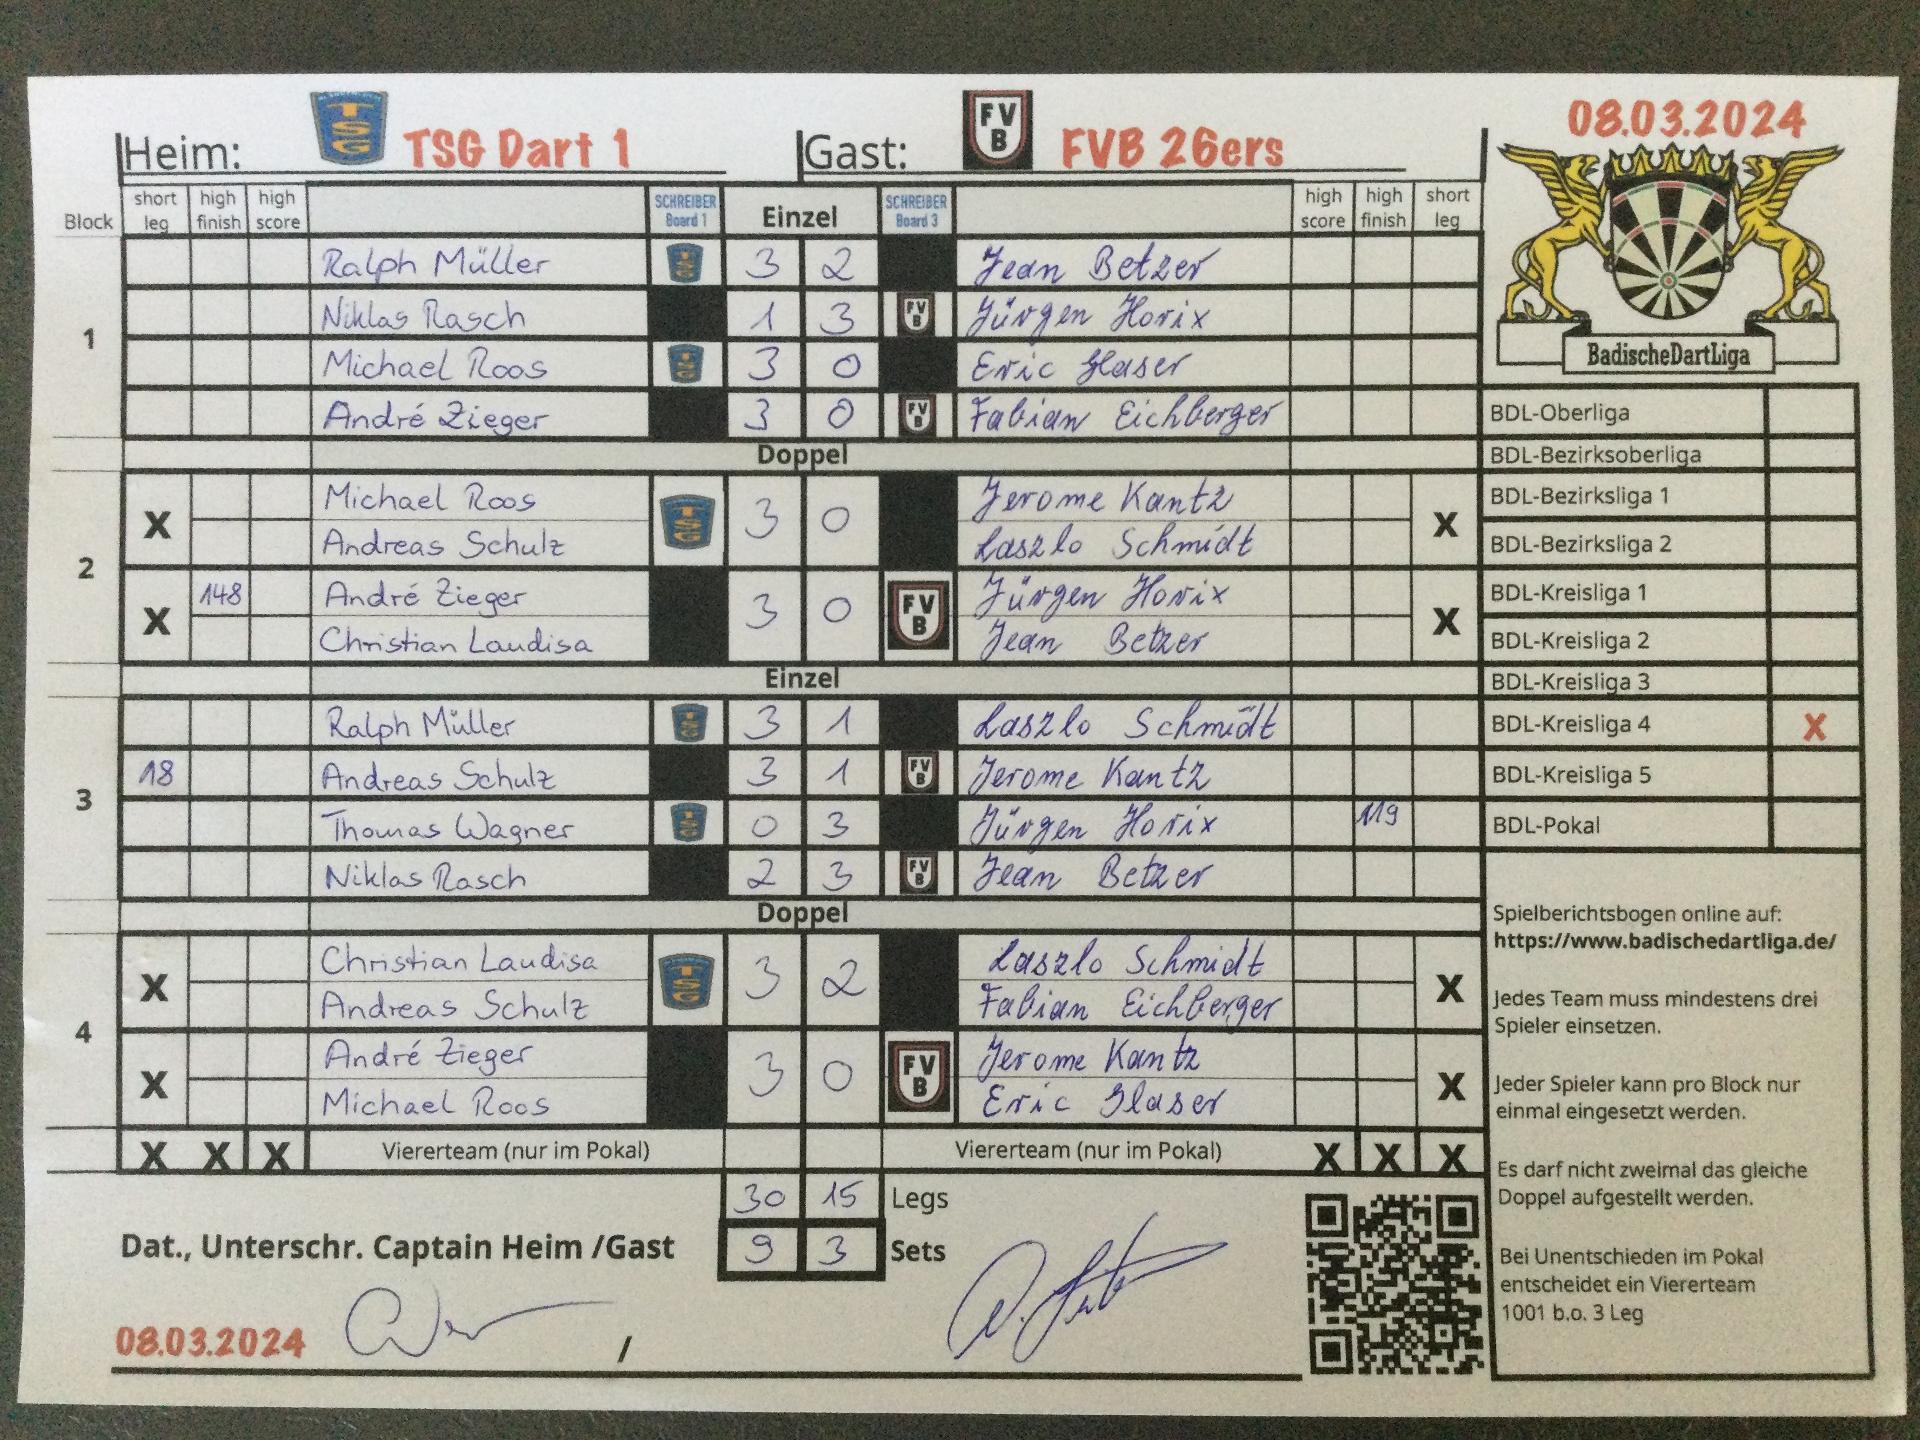 08.03.2024
Heim: TSG TSG Dart 1 Gast: FVB FVB 26ers
Block short leg high finish high score SCHREIBER Board 1 Einzel SCHREIBER Board 3 high score high finish short leg
BadischeDartLiga
1
Ralph Müller TSG 3 2 Jean Betzer
Niklas Rasch 1 3 FVB Jürgen Horix
Michael Roos TSG 3 0 Eric Glaser
André Zieger 3 0 FVB Fabian Eichberger
Doppel
2
X Michael Roos TSG 3 0 Jerome Kantz X
Andreas Schulz Laszlo Schmidt
X 148 André Zieger 3 0 FVB Jürgen Horix X
Christian Laudisa Jean Betzer
Einzel
3
Ralph Müller TSG 3 1 Laszlo Schmidt
18 Andreas Schulz 3 1 FVB Jerome Kantz
Thomas Wagner TSG 0 3 Jürgen Horix 119
Niklas Rasch 2 3 FVB Jean Betzer
Doppel
4
X Christian Laudisa TSG 3 2 Laszlo Schmidt X
Andreas Schulz Fabian Eichberger
X André Zieger 3 0 FVB Jerome Kantz X
Michael Roos Eric Glaser
X X X Viererteam (nur im Pokal) Viererteam (nur im Pokal) X X X
30 15 Legs
Dat., Unterschr. Captain Heim /Gast 9 3 Sets
08.03.2024 /
BDL-Oberliga
BDL-Bezirksoberliga
BDL-Bezirksliga 1
BDL-Bezirksliga 2
BDL-Kreisliga 1
BDL-Kreisliga 2
BDL-Kreisliga 3
BDL-Kreisliga 4 X
BDL-Kreisliga 5
BDL-Pokal
Spielberichtsbogen online auf:
https://www.badischedartliga.de/
Jedes Team muss mindestens drei
Spieler einsetzen.
Jeder Spieler kann pro Block nur
einmal eingesetzt werden.
Es darf nicht zweimal das gleiche
Doppel aufgestellt werden.
Bei Unentschieden im Pokal
entscheidet ein Viererteam
1001 b.o. 3 Leg